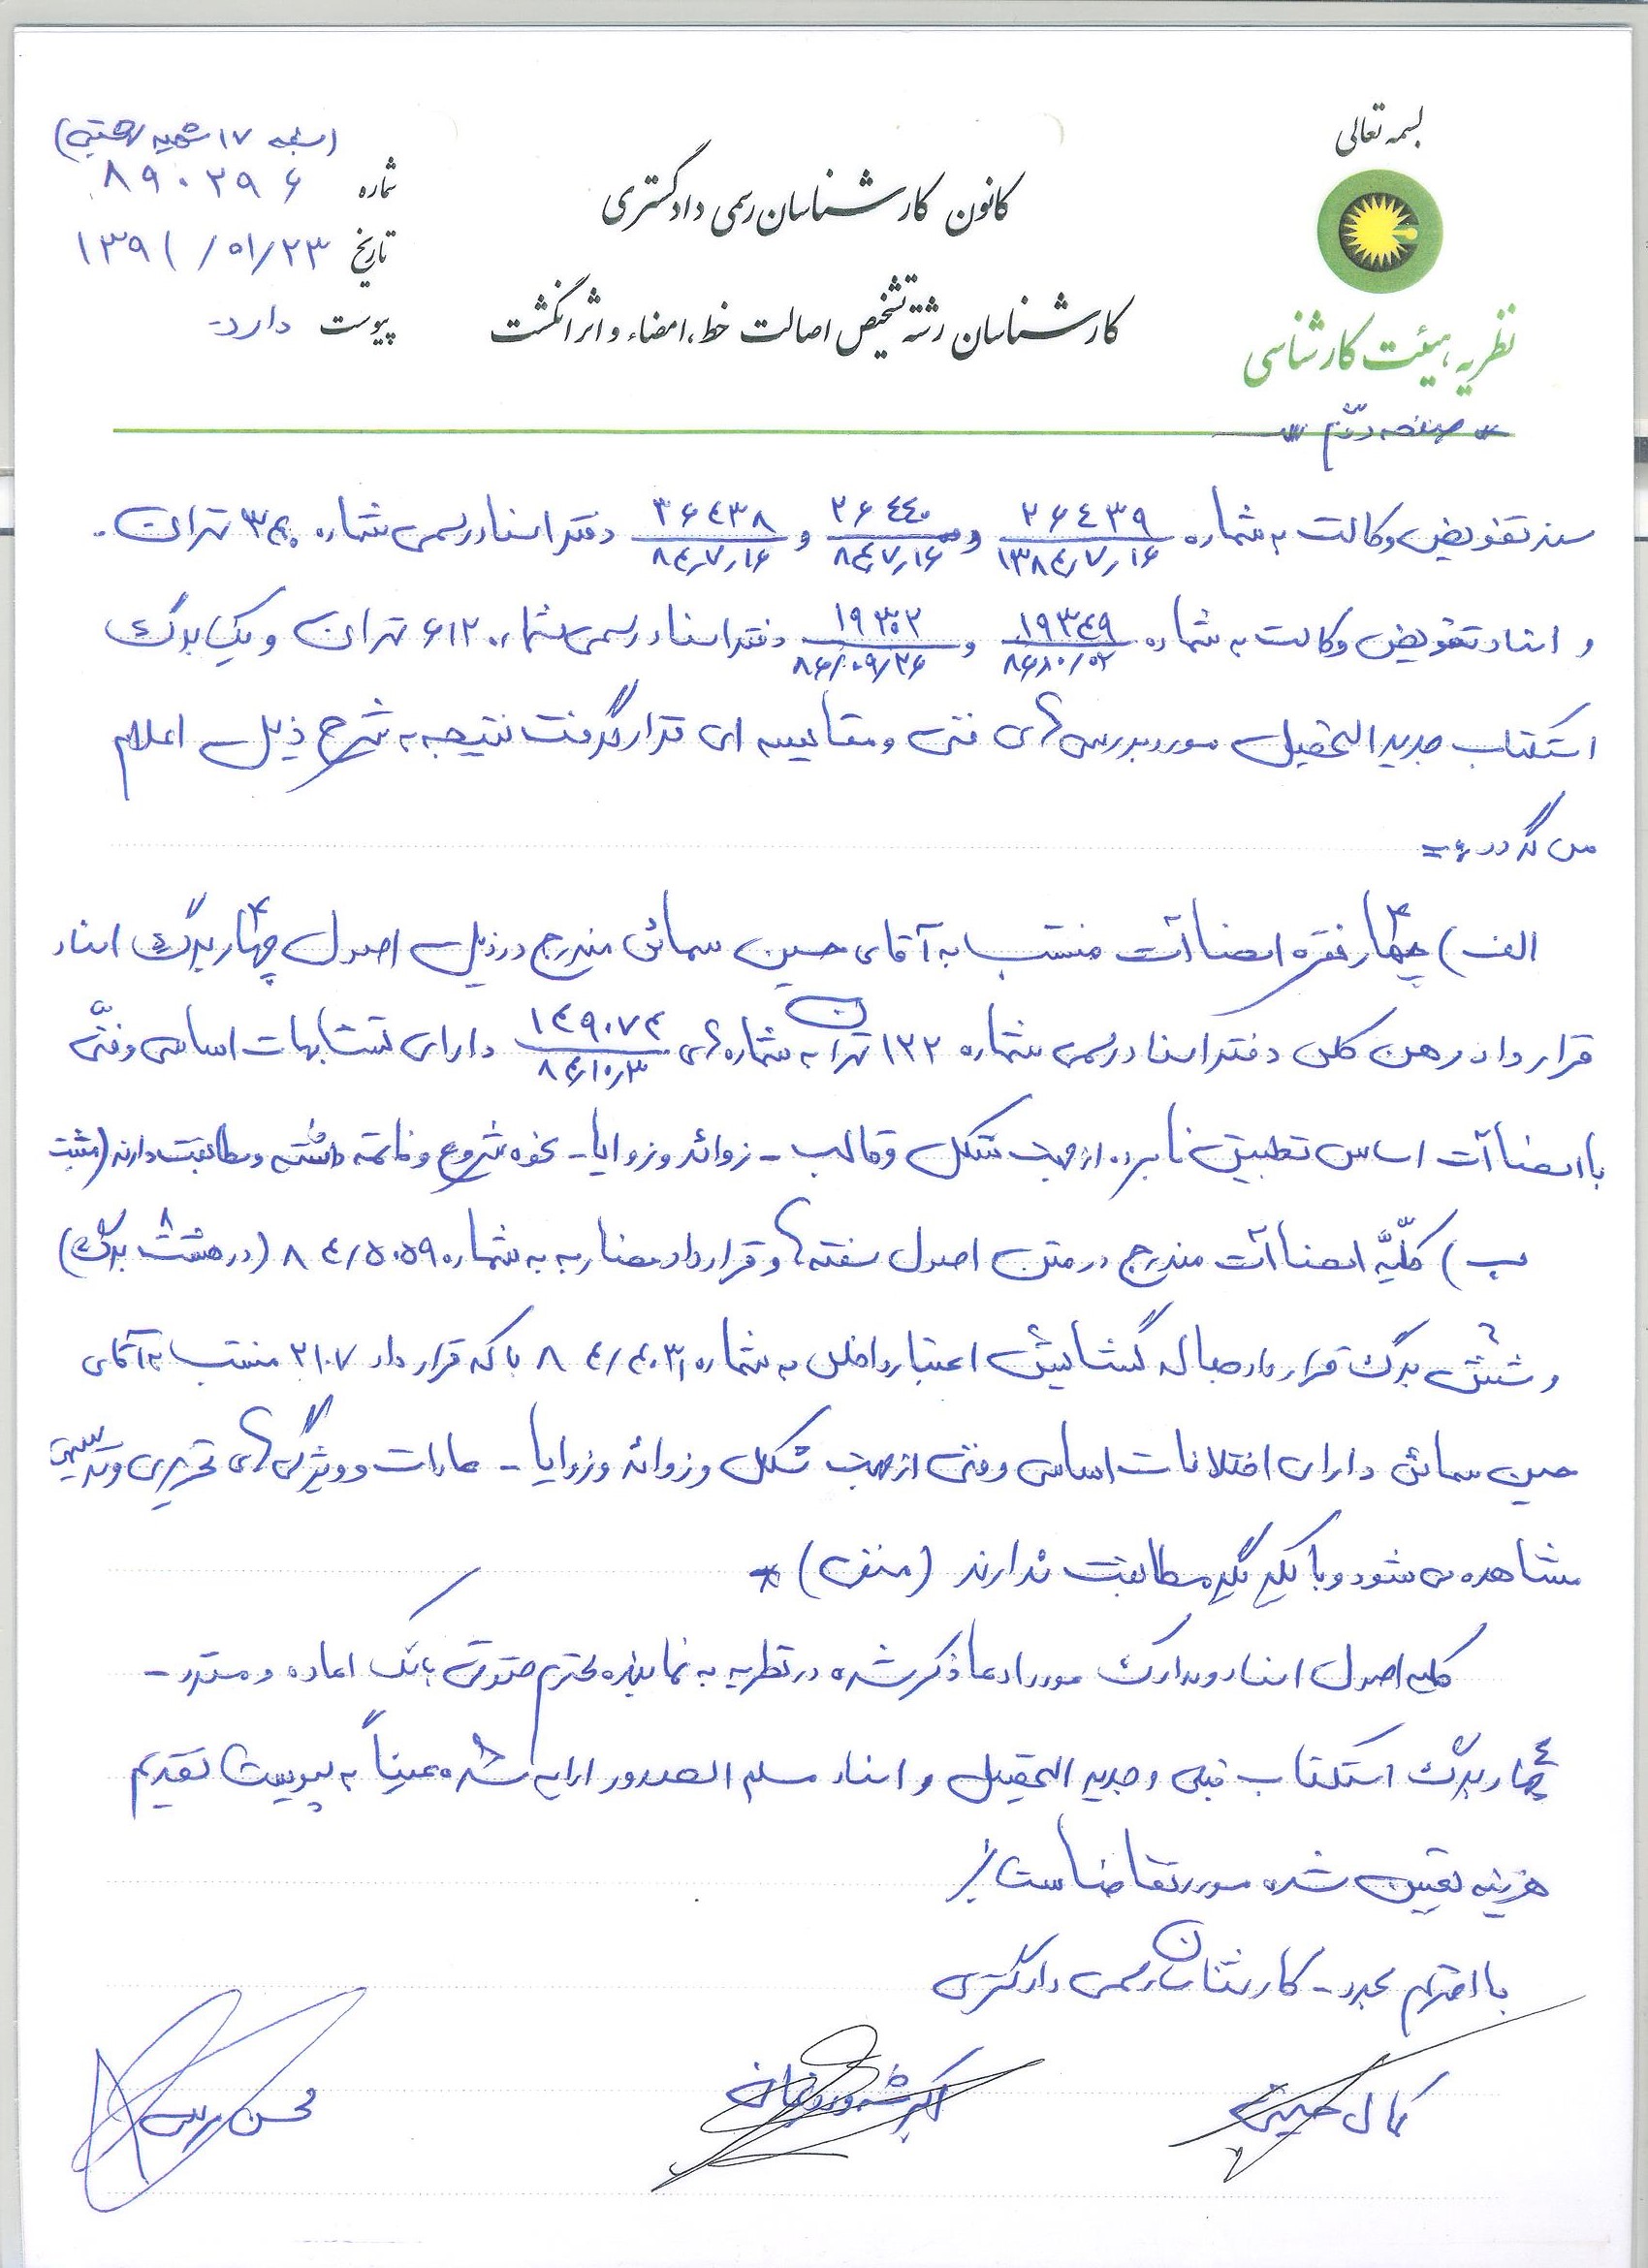 بسمه تعالی
کانون کارشناسان رسمی دادگستری
کارشناسان رشته تشخیص اصالت خط، امضاء و اثر انگشت
نظریه هیئت کارشناسی
شماره ۸۹۰۲۹۶
تاریخ ۱۳۹۱/۰۱/۲۳
پیوست دارد
صفحه دوّم
سند تفویض وکالت به شماره ۲۶۴۳۹ ۱۳۸۴/۷/۱۶ و ۲۶۴۴۰ ۸۴/۷/۱۶ و ۲۶۴۳۸ ۸۴/۷/۱۶ دفتر اسناد رسمی شماره تهران
و اسناد تفویض وکالت به شماره ۱۹۳۴۹ ۸۶/۱۰/۰۲ و ۱۹۳۰۲ ۸۶/۰۹/۲۶ دفتر اسناد رسمی شماره ۶۱۲ تهران و یک برگ
استکتاب جدید التحصیل مورد بررسی های فنی و مقایسه ای قرار گرفت نتیجه به شرح ذیل اعلام
می گردد :=
الف) چهار فقره امضاآت منتسب به آقای حسین سمائی مندرج در ذیل اصول چهار برگ اسناد
قرارداد رهن کلی دفتر اسناد رسمی شماره ۱۲۲ تهران به شماره های ۱۴۹۰۷۴ دارای تشابهات اساسی و فنّی
با امضاآت اساس تطبیق نامبرده از جهت شکل و قالب - زوائد و زوایا - نحوه شروع و خاتمه داشته و مطابقت دارند (مثبت
ب) کلیّه امضاآت مندرج در متن اصول سفته ها و قرارداد مضاربه به شماره ۸۴/۵۰۵۹ (در هشت برگ)
و شش برگ قرارداد گشایش اعتبار داخلی به شماره ۸۴/۴۰۳۱ با کد قرارداد ۲۱۰۷ منتسب به آقای
حسین سمائی دارای اختلافات اساسی و فنی از جهت شکل و زوائد و زوایا - عادات و ویژگی های تحریری و ترسیمی
مشاهده می شود و با یکدیگر مطابقت ندارند (منفی) *
کلیه اصول اسناد و مدارک مورد ادعا ذکر شده در نظریه به نماینده محترم حقوقی بانک اعاده و مسترد -
چهار برگ استکتاب قبلی و جدید التحصیل و اسناد مسلم الصدور ارایه شده عیناً به پیوست تقدیم
هزینه تعیین شده مورد تقاضاست /.
با احترام مجدد - کارشناسان رسمی دادگستری
کمال اکبر محسن